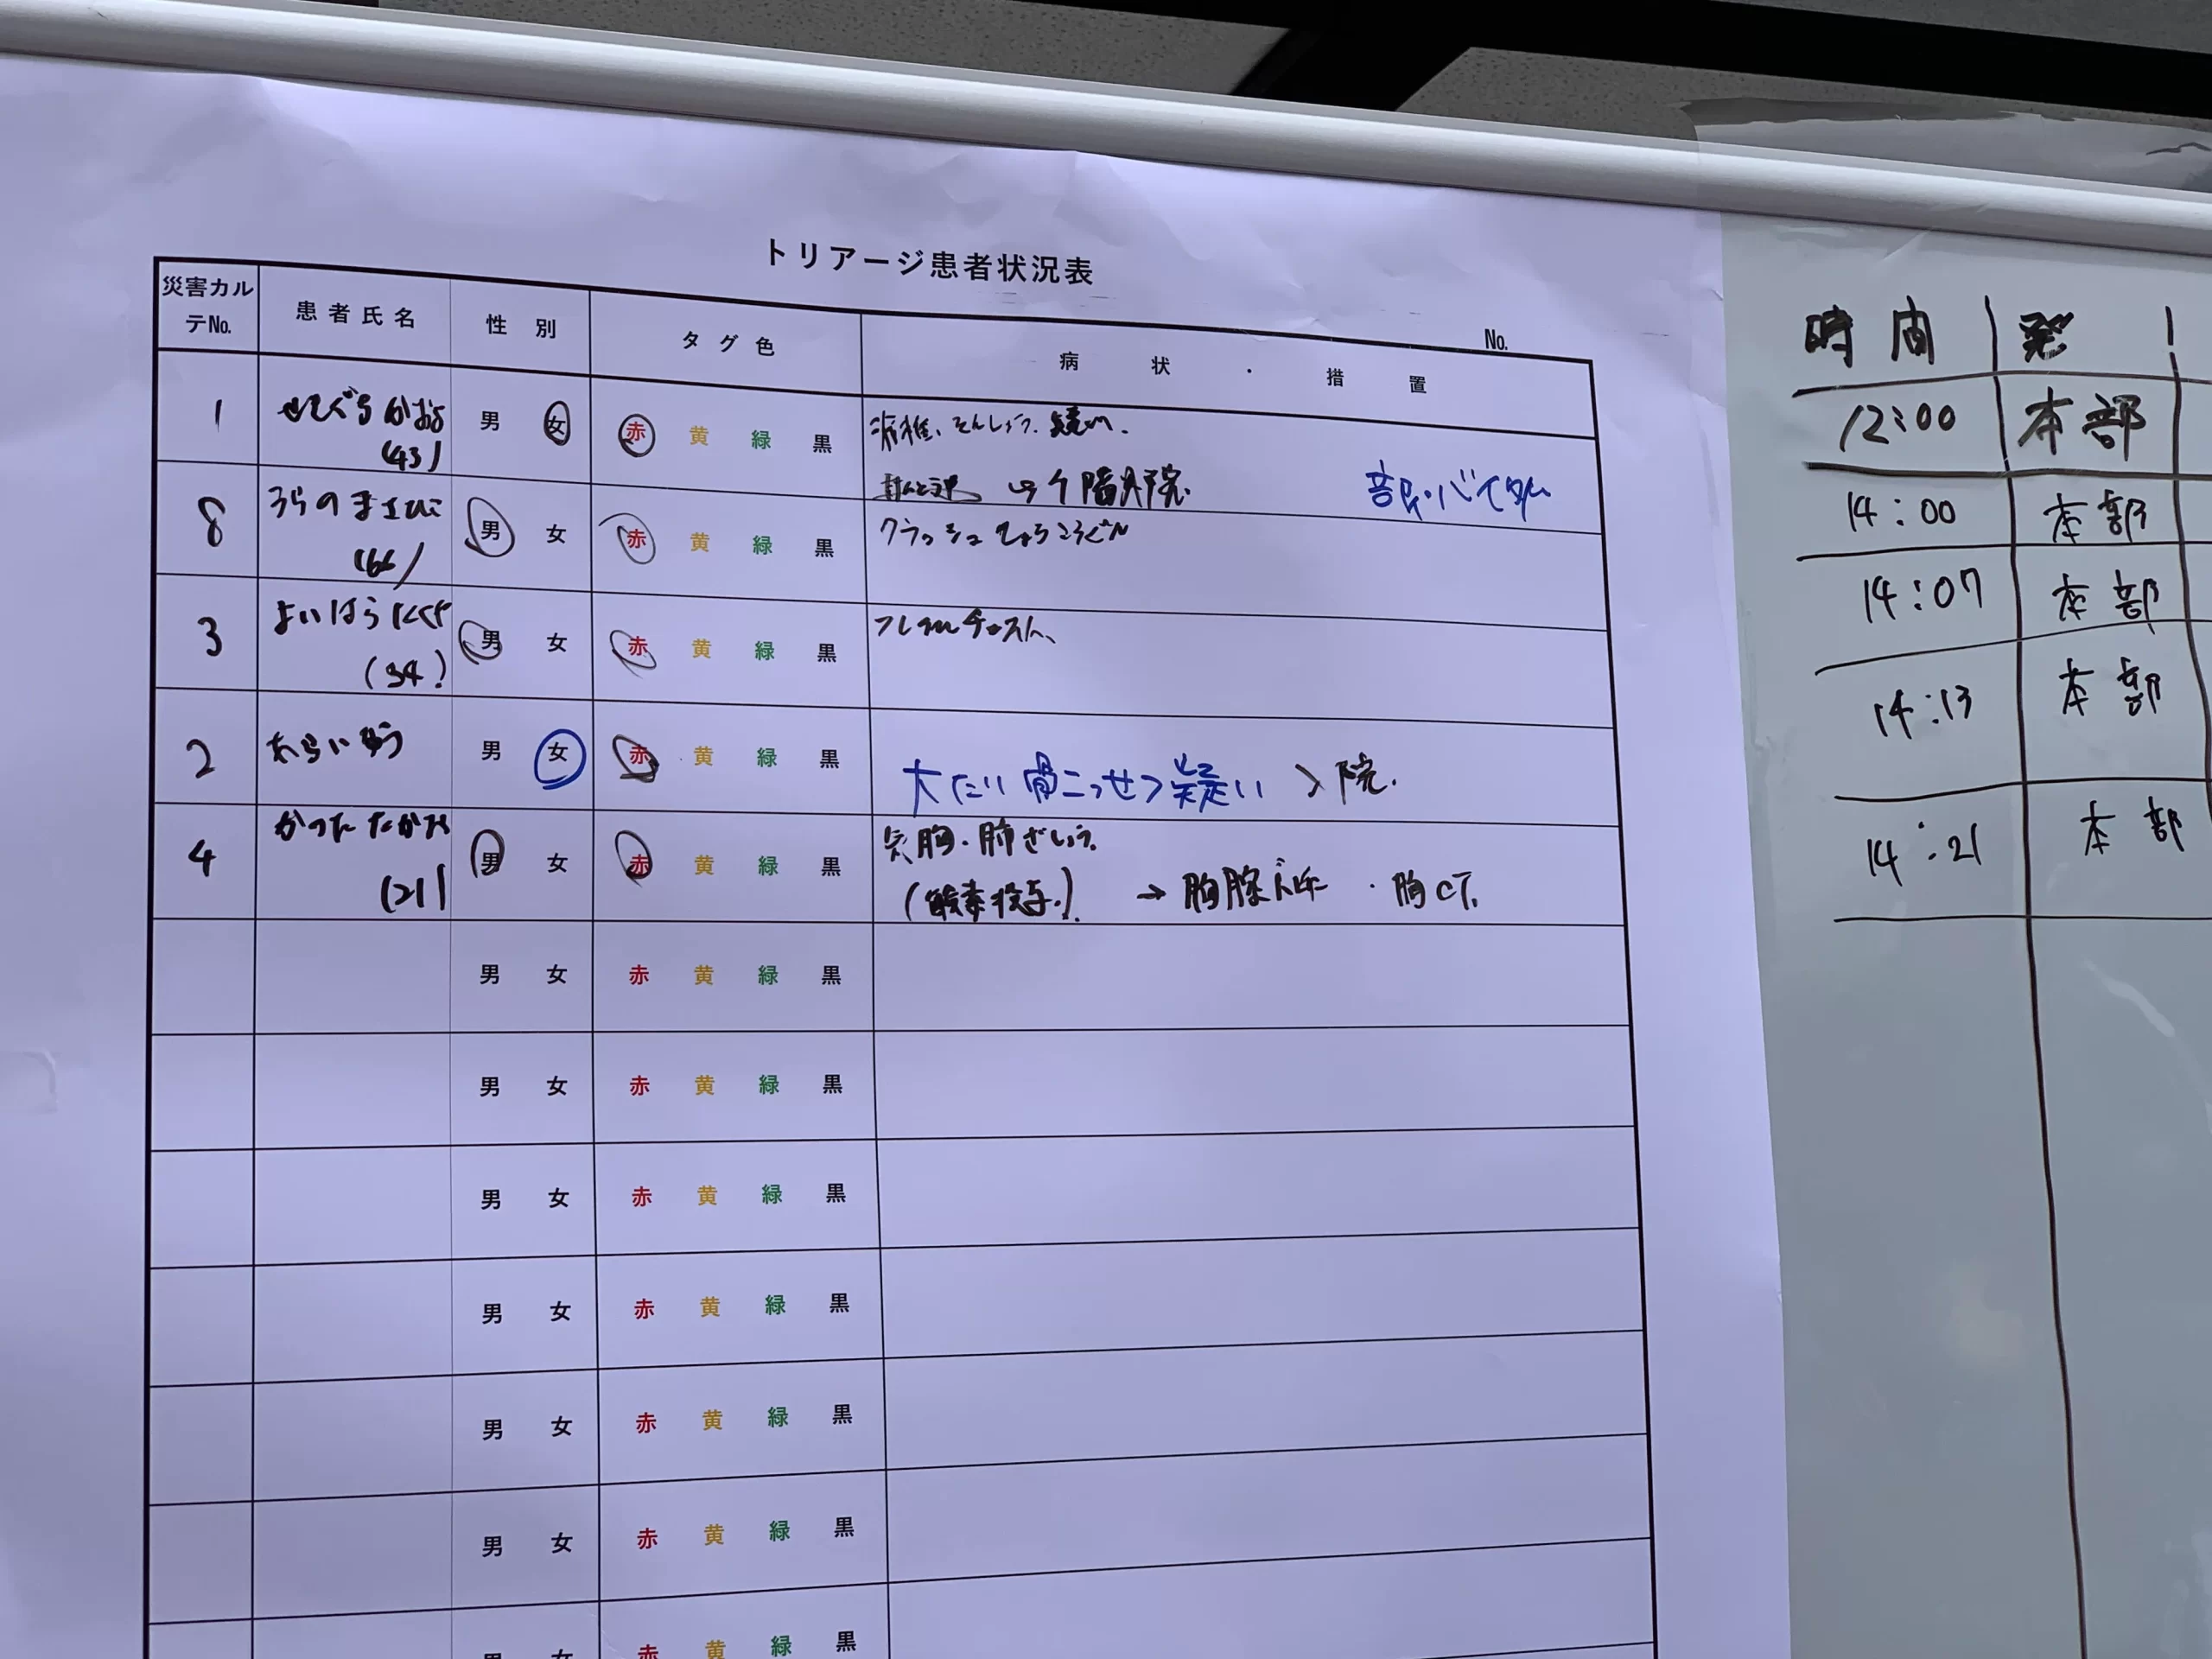 トリアージ患者状況表
No.
災害カルテNo. 患者氏名 性別 タグ色 病状・措置
1 かおる (43) 男 女 赤 黄 緑 黒 そんしょう 疑い
院 バイタル
8 うらの (66) 男 女 赤 黄 緑 黒 クラッシュしょうこうぐん
3 よいはら (34) 男 女 赤 黄 緑 黒 フレイルチェスト
2 あらい ゆう 男 女 赤 黄 緑 黒 大たい骨こっせつ疑い 入院.
4 かつた たかお (21) 男 女 赤 黄 緑 黒 気胸・肺ざしょう
(酸素投与.) → 胸腔ドレナージ ・胸CT.
男 女 赤 黄 緑 黒
男 女 赤 黄 緑 黒
男 女 赤 黄 緑 黒
男 女 赤 黄 緑 黒
男 女 赤 黄 緑 黒
男 女 赤 黄 緑 黒
男 女 赤 黄 緑 黒
時間 発
12:00 本部
14:00 本部
14:07 本部
14:13 本部
14:21 本部